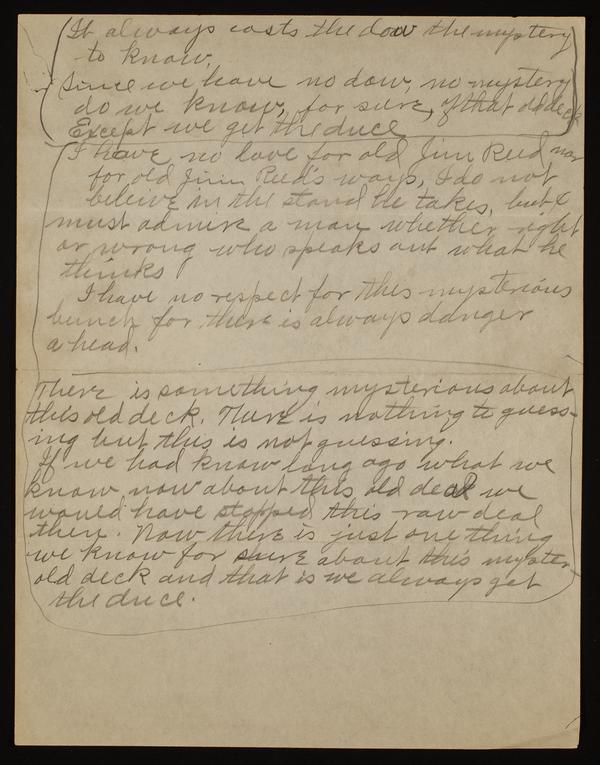 It always costs the dow the mystery
to know,
Since we have no dow, no mystery
do we know, for sure, of that old deck
Except we get the duce
I have no love for old Jim Reed nor
for old Jim Reed's ways, I do not
beleive in the stand he takes, but I
must admire a man whether right
or wrong who speaks out what he
thinks
I have no respect for this mysterious
bunch for there is always danger
ahead.
There is something mysterious about
this old deck. There is nothing to guess-
ing but this is not guessing.
If we had know long ago what we
know now about this old deal we
would have stopped this raw deal
then. Now there is just one thing
we know for sure about this myster-
old deck and that is we always get
the duce.